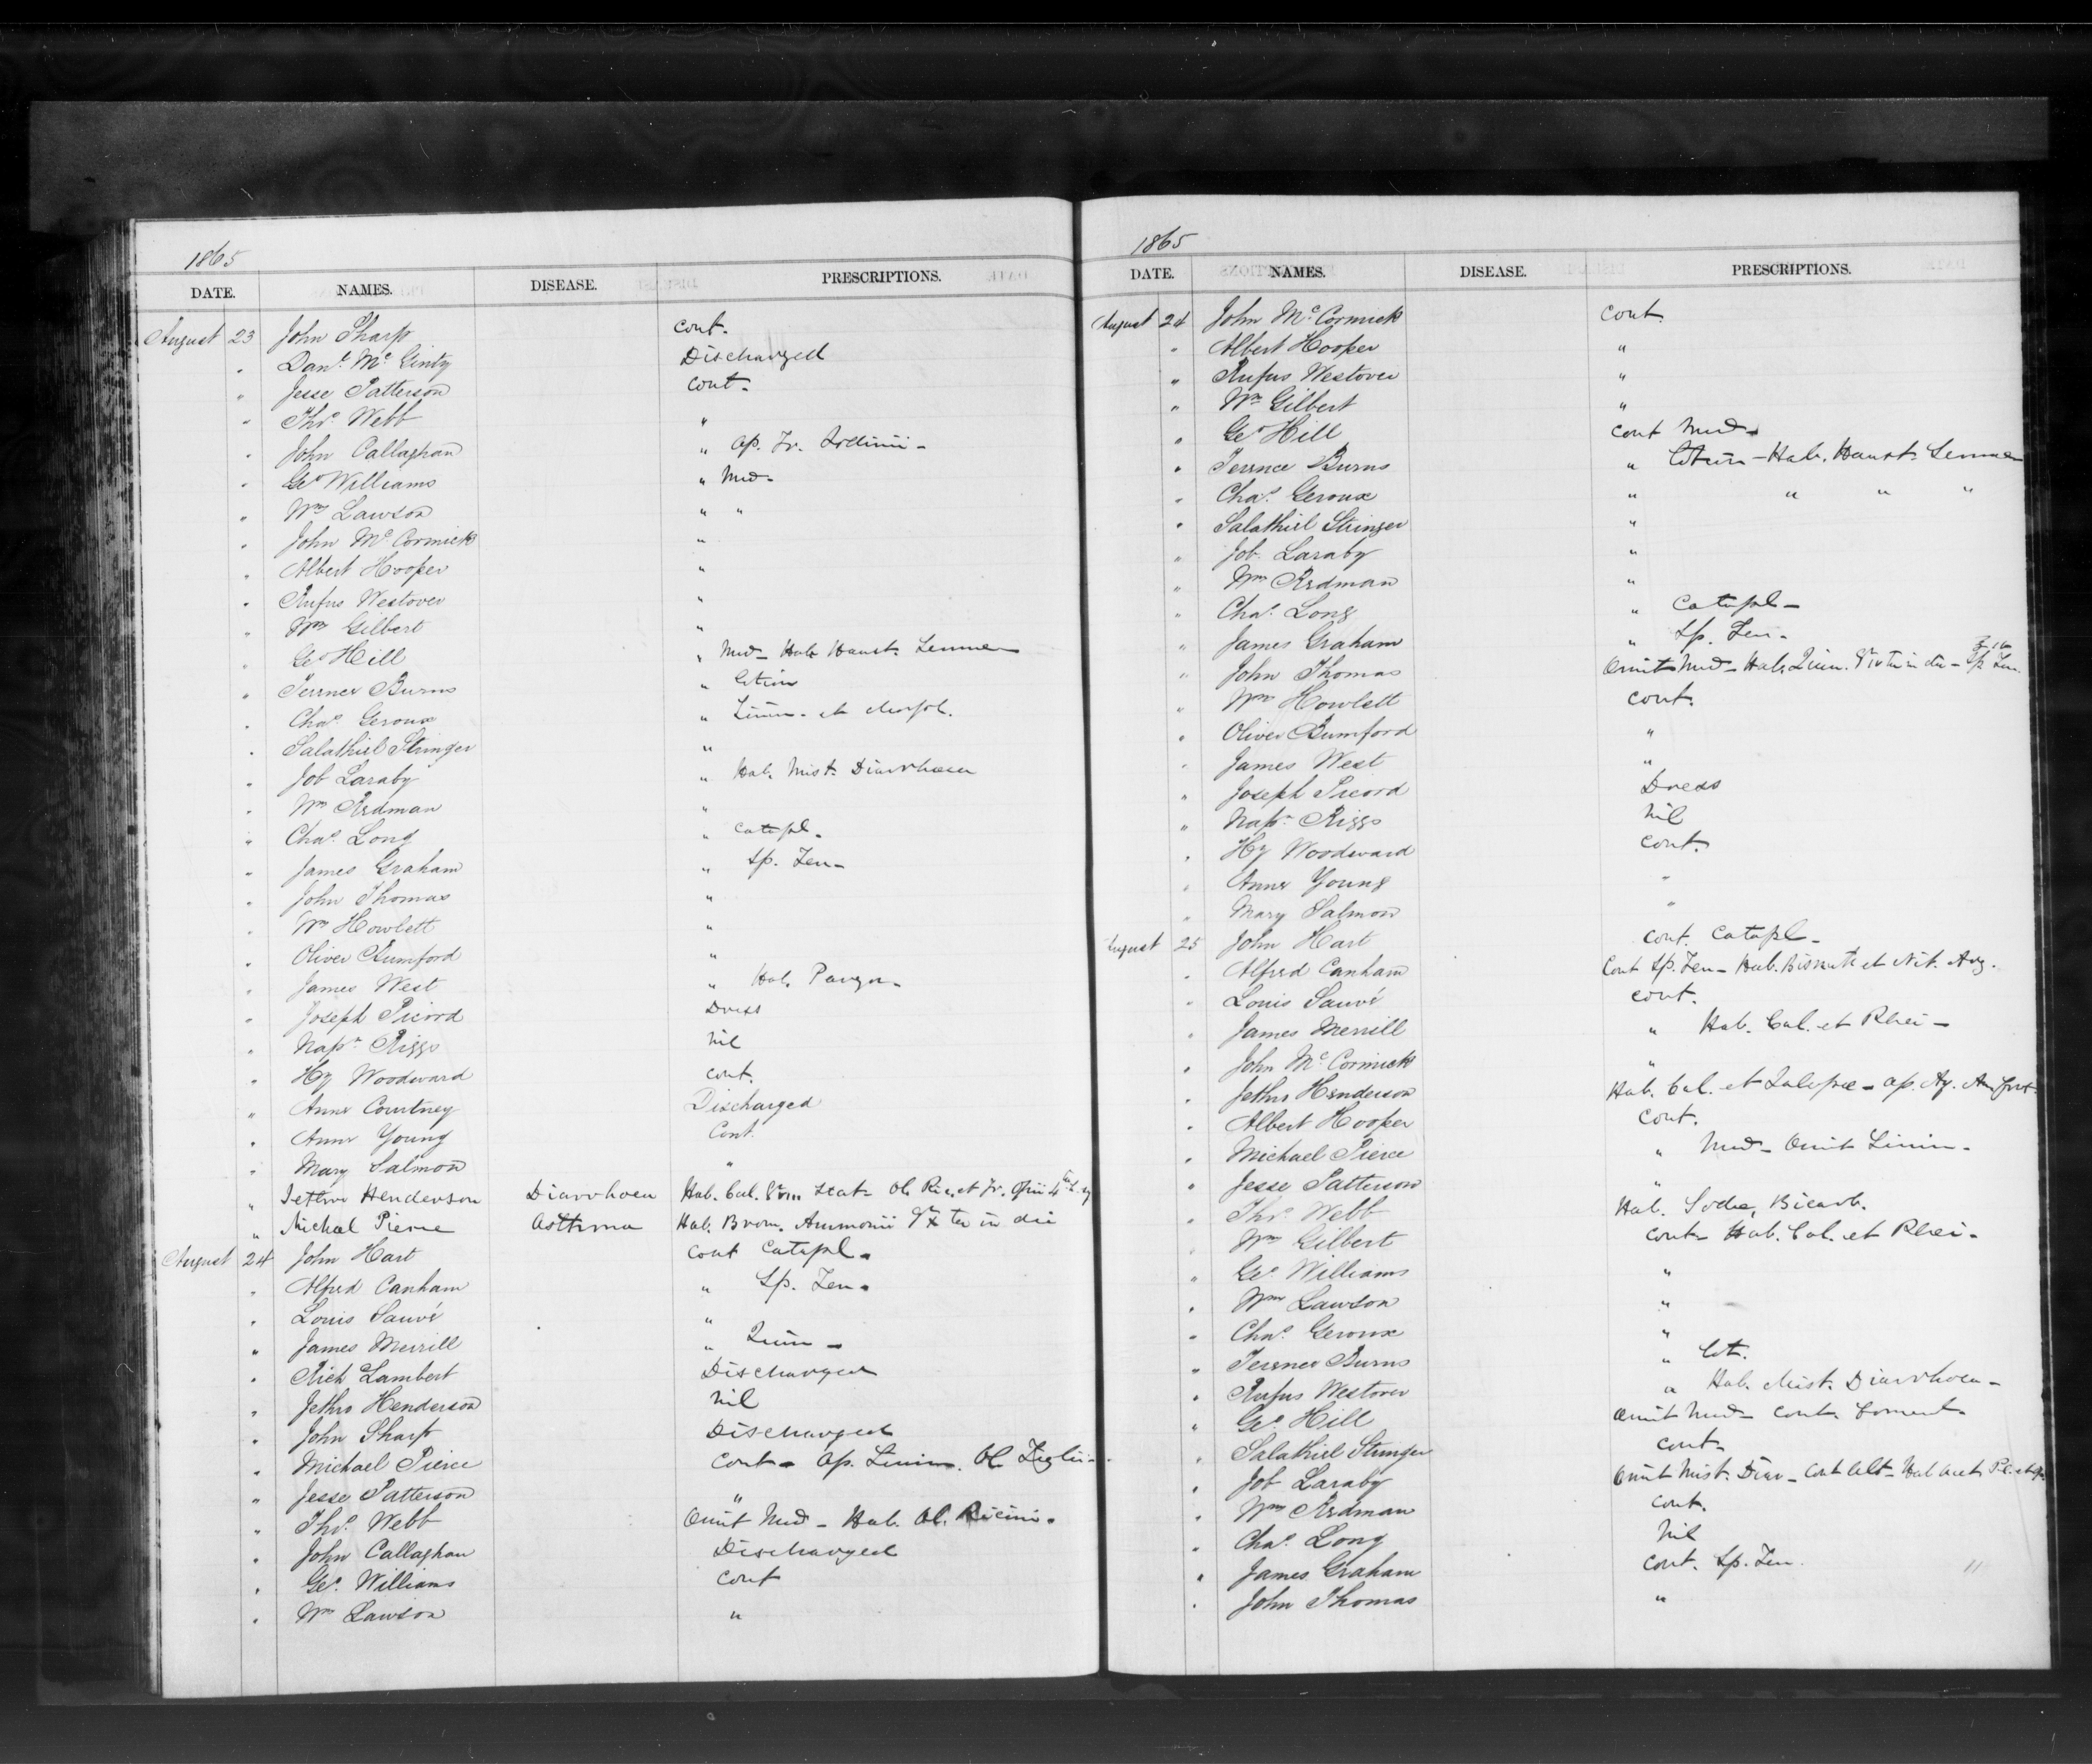 1865
DATE. NAMES. DISEASE. PRESCRIPTIONS.
August 23 John Sharp cont.
" Danl. Mc Ginty Discharged
" Jesse Patterson cont.
" Thos. Webb "
" John Callaghan " Ap. Tr. Iodinii -
" Geo Williams " Med.
" Wm Lawson " "
" John Mc Cormick "
" Albert Hooper "
" Rufus Westover "
" Wm Gilbert "
" Geo Hill " Med - Hab Haust. Sennae
" Terence Burns " Lotion
" Chas. Geroux " Linim. et Morph.
" Salathiel Stringer "
" Job Laraby " Hab. Mist. Diarrhoea
" Wm Erdman "
" Chas. Long " Catapl.
" James Graham " Sp. Fen -
" John Thomas "
" Wm Howlett "
" Oliver Bumford "
" James West " Hab. Purgn.
" Joseph Picord Dress
" Napn. Riggs Nil
" Hy Woodward cont.
" Anne Courtney Discharged
" Anne Young Cont.
" Mary Salmon "
" Jethro Henderson Diarrhoea Hab. Cal. Stat - Ol. Ric. et Tr. Opii
" Michael Pierce Asthma Hab. Brom. Ammonii gr x ter in die
August 24 John Hart Cont Catapl.
" Alfred Canham " Sp. Fen.
" Louis Sauvé "
" James Merrill " Quin -
" Rich Lambert Discharged
" Jethro Henderson Nil
" John Sharp Discharged
" Michael Pierce Cont - Ap. Linim. Ol. Tiglii -
" Jesse Patterson "
" Thos. Webb Omit Med - Hab. Ol. Ricini.
" John Callaghan Discharged
" Geo. Williams Cont
" Wm Lawson "
1865
DATE. NAMES. DISEASE. PRESCRIPTIONS.
August 24 John Mc Cormick Cont.
" Albert Hooper "
" Rufus Westover "
" Wm Gilbert "
" Geo Hill Cont Med -
" Terence Burns " Lotion - Hab. Haust. Sennae
" Chas. Geroux " " " "
" Salathiel Stringer "
" Job Laraby "
" Wm Erdman "
" Chas. Long " Catapl -
" James Graham " Sp. Fen -
" John Thomas Omit Med - Hab. Quin. ter in die - Sp. Fen.
" Wm Howlett Cont.
" Oliver Bumford "
" James West "
" Joseph Picord Dress
" Napn. Riggs Nil
" Hy Woodward Cont.
" Anne Young "
" Mary Salmon "
August 25 John Hart Cont. Catapl -
" Alfred Canham Cont Sp. Fen - Hab. Bismuth et Nit. Arg.
" Louis Sauvé Cont.
" James Merrill " Hab. Cal. et Rhei -
" John Mc Cormick "
" Jethro Henderson Hab. Cal. et Jalapae - Ap. Aq. Am. fort.
" Albert Hooper Cont.
" Michael Pierce " Med - Omit Linim -
" Jesse Patterson "
" Thos. Webb Hab. Sodae Bicarb.
" Wm Gilbert Cont - Hab. Cal. et Rhei -
" Geo. Williams "
" Wm Lawson "
" Chas. Geroux "
" Terence Burns " Lot.
" Rufus Westover " Hab. Mist. Diarrhoea -
" Geo. Hill Omit Med - Cont. Foment.
" Salathiel Stringer Cont -
" Job Laraby Omit Mist. Diar - Cont Alt - Hab Acet. Pl. et
" Wm Erdman Cont.
" Chas. Long Nil
" James Graham Cont. Sp. Fen.
" John Thomas "